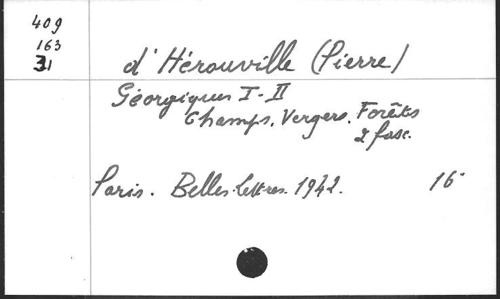 409
163
31
d'Hérouville (Pierre)
Géorgiques I-II
Champs. Vergers. Forêts
2 fasc.
Paris. Belles-Lettres. 1942. 16°